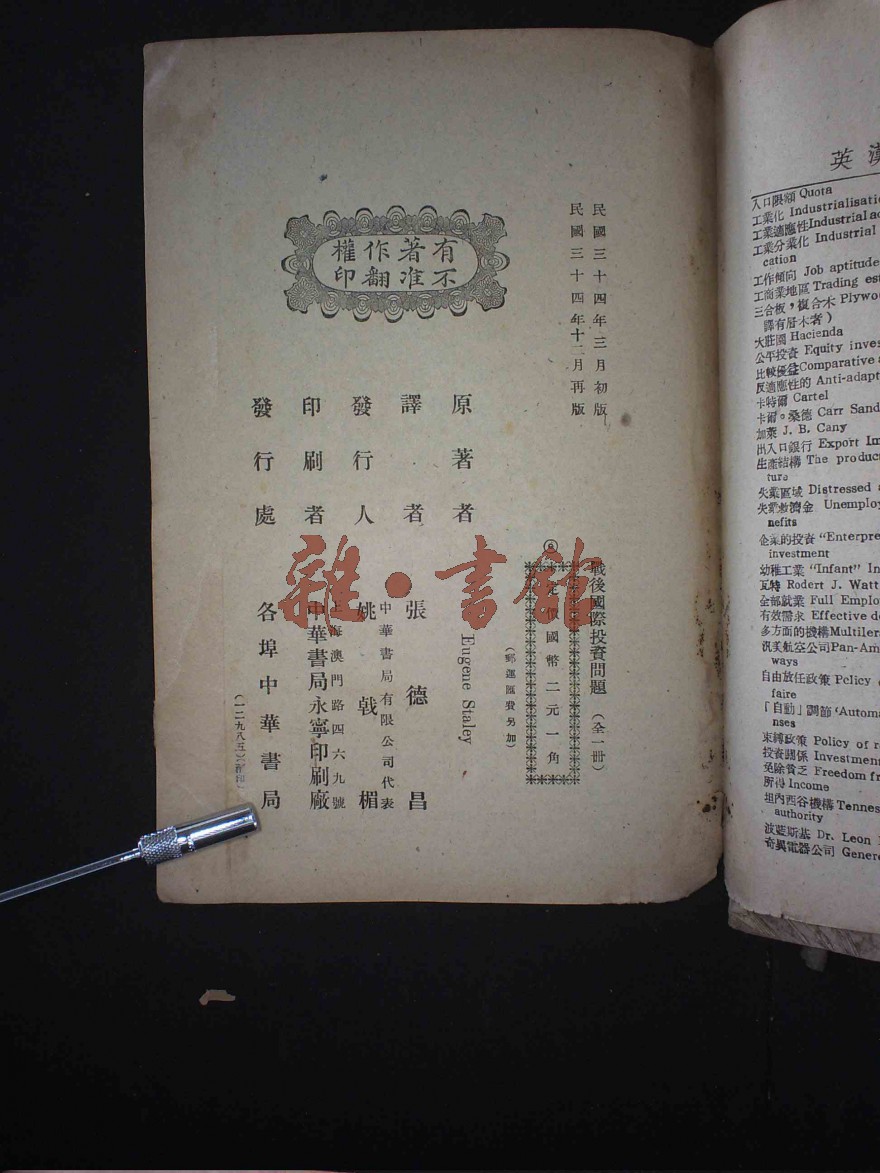 民國三十四年三月初版
民國三十四年十二月再版
有著作權
不准翻印
戰後國際投資問題（全一冊）
定價國幣二元一角
（郵運匯費另加）
原著者 Eugene Staley
譯者 張德昌
發行人 姚戟楣
中華書局有限公司代表
印刷者 中華書局永寧印刷廠
上海澳門路四六九號
發行處 各埠中華書局
（一二九八五）
雜·書館
英漢
入口限額 Quota
工業化 Industrialisati
工業適應性 Industrial ad
工業分業化 Industrial
cation
工作傾向 Job aptitude
工商業地區 Trading est
三合板，複合木 Plywo
譯有層木者）
大莊園 Hacienda
公平投資 Equity inves
比較優益 Comparative a
反適應性的 Anti-adapt
卡特爾 Cartel
卡爾。桑德 Carr Sand
加萊 J. B. Cany
出入口銀行 Export Im
生產結構 The produc
ture
失業區域 Distressed a
失業救濟金 Unemploy
nefits
企業的投資 “Enterpre
investment
幼稚工業 “Infant” In
瓦特 Rodert J. Watt
全部就業 Full Emplo
有效需求 Effective de
多方面的機構 Multiler
汎美航空公司 Pan-Am
ways
自由放任政策 Policy
faire
「自動」調節 ‘Automa
nses
束縛政策 Policy of r
投資關係 Investmen
免除貧乏 Freedom fr
所得 Income
坦內西谷機構 Tennes
authority
波藍斯基 Dr. Leon
奇異電器公司 Gener